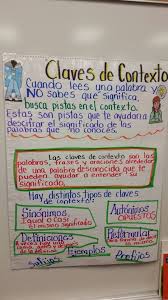 Claves de Contexto
Cuando lees una palabra y
NO sabes que significa,
busca pistas en el contexto.
Estas son pistas que te ayudaran a
descifrar el significado de las
palabras que no conoces.
Las claves de contexto son las
palabras, frases y oraciones alrededor
de una palabra desconocida que te
pueden ayudar a entender su
significado.
Hay distintos tipos de claves
de contexto:
Sinónimos
mismo significado
Antónimos
opuestos
Definiciones
Ejemplos
Sufijos
Prefijos